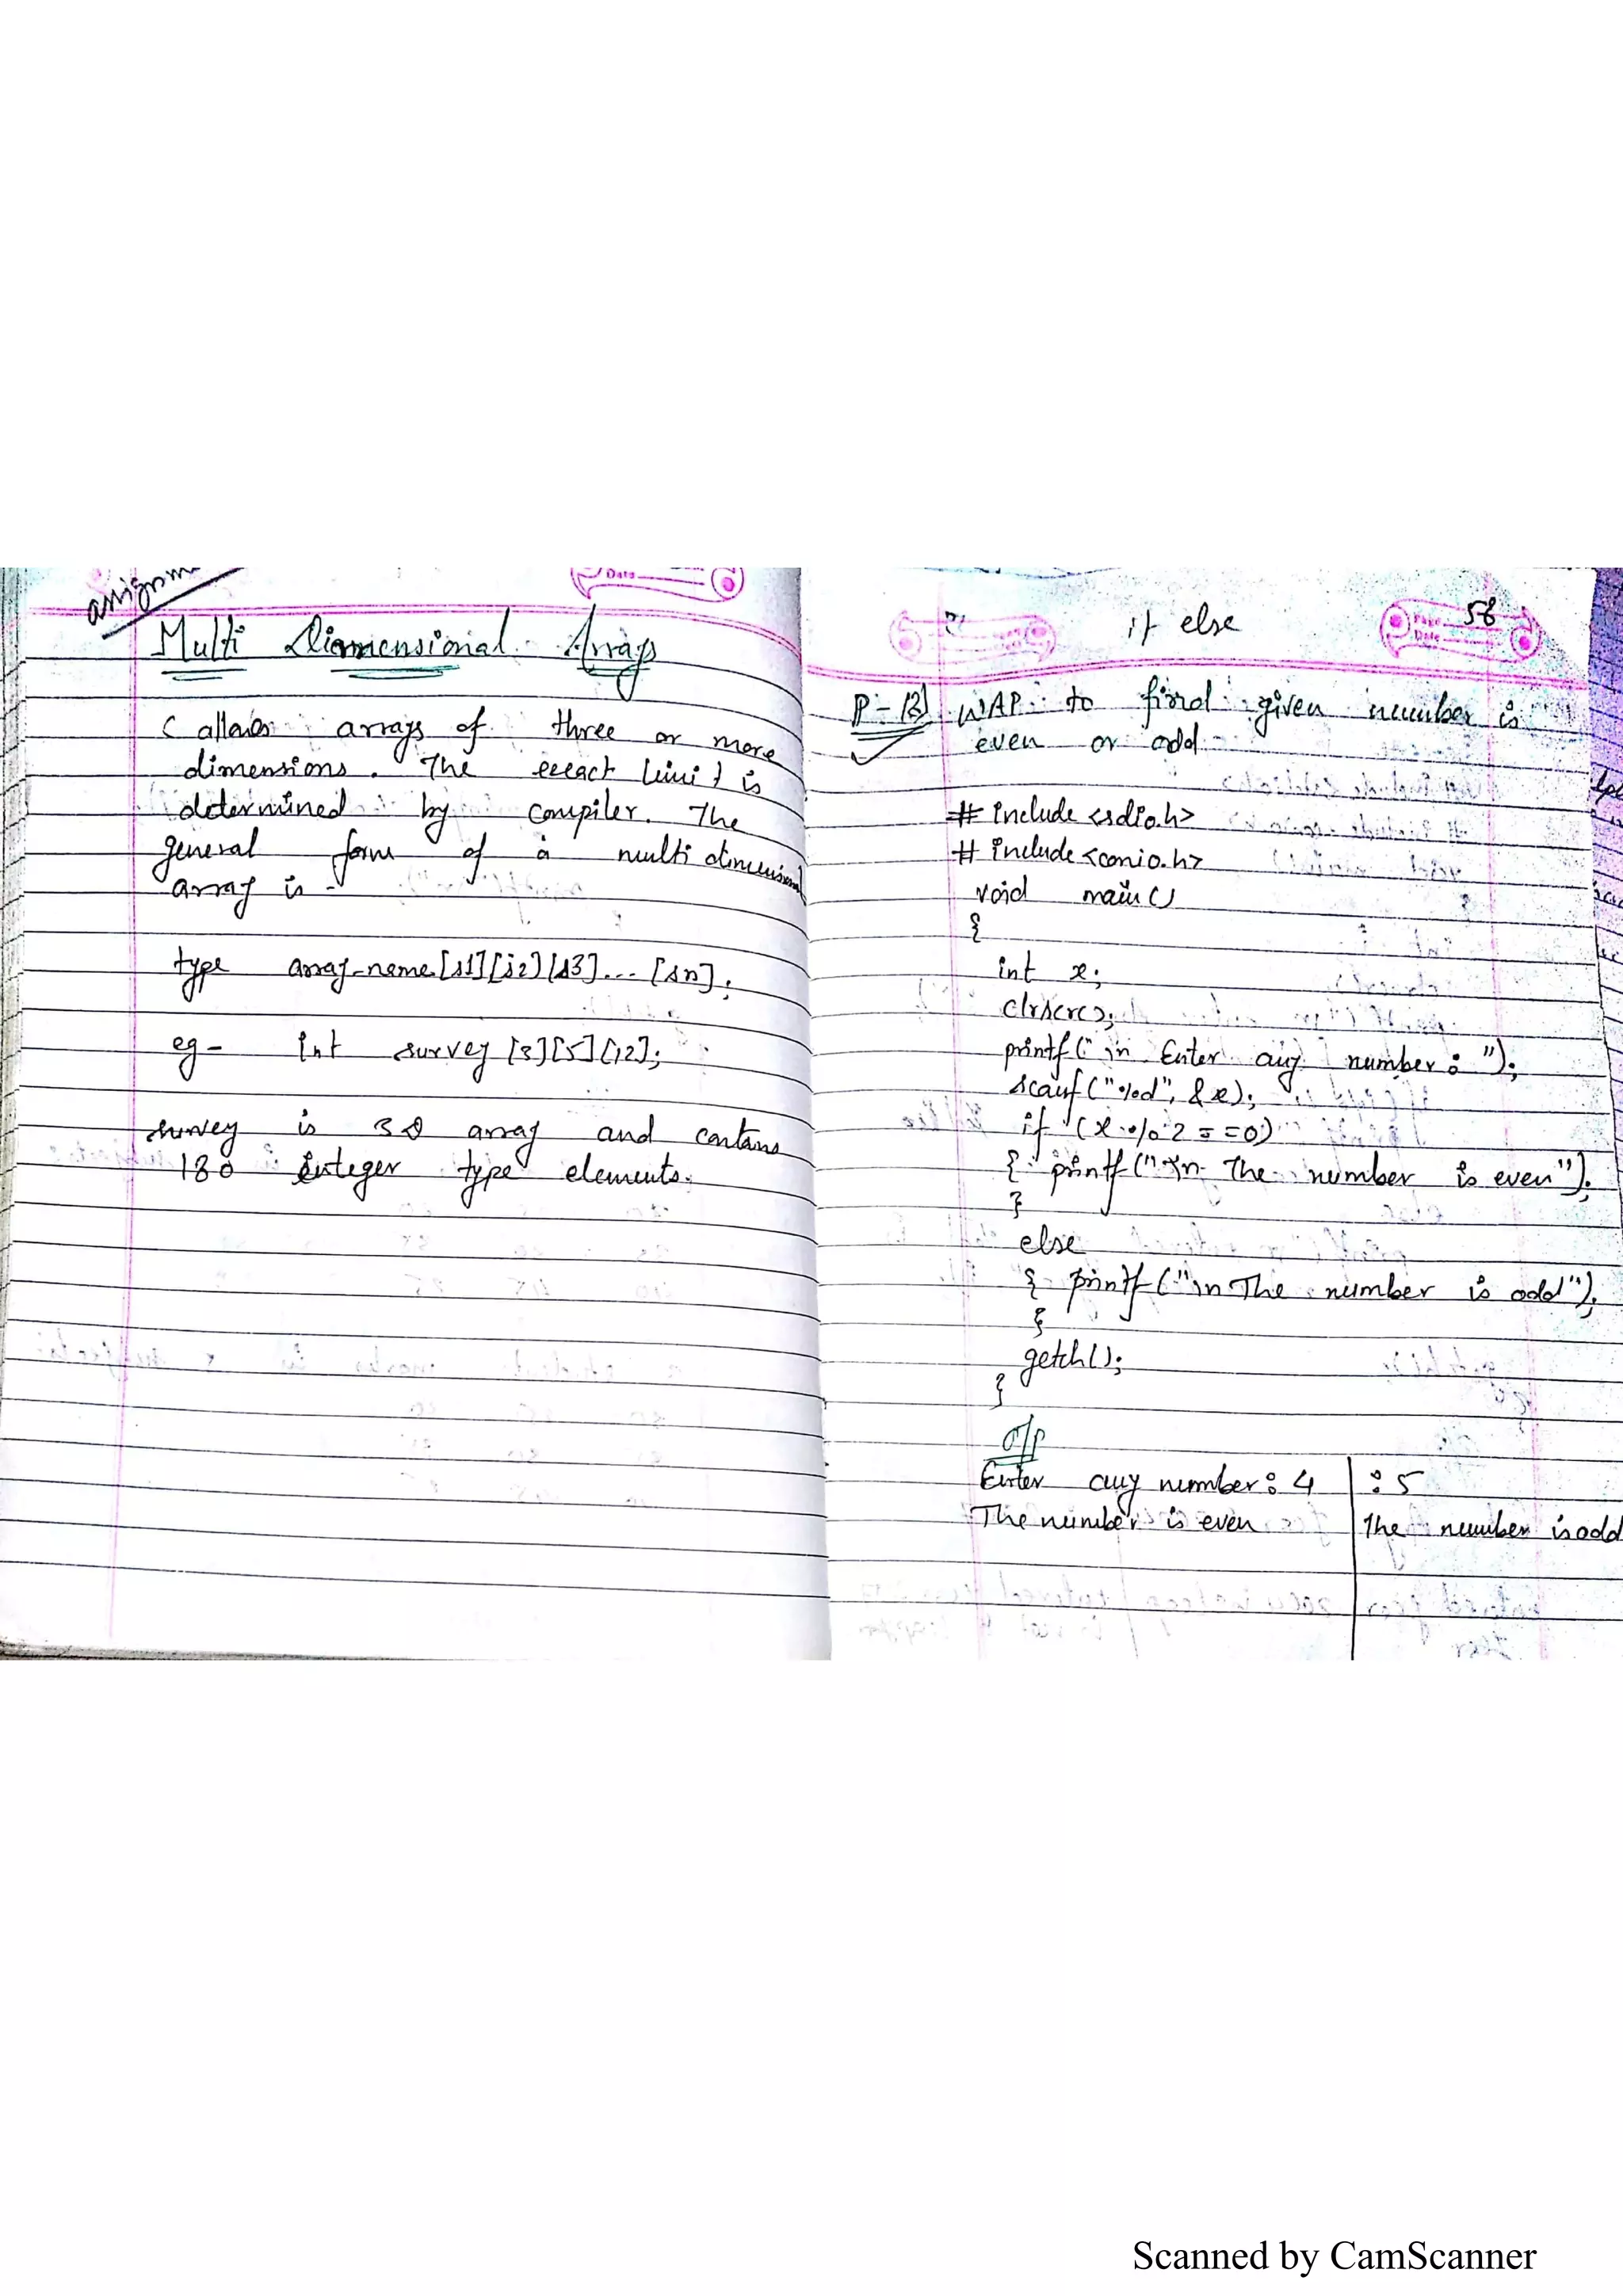 Date
Multi Diamensional Arrays
C allows arrays of three or more
dimensions. The exact limit is
determined by compiler. The
general form of a multi dimensional
array is -
type array-name[s1][s2][s3]... [sn];
eg- int survey [3][5][12];
survey is 3D array and contains
180 integer type elements.
if else
Page 58
Date
WAP to find given number is
even or odd
# include <sdio.h>
# include <conio.h>
void main()
{
int x;
clrscr();
printf("\n Enter any number: ");
scanf("%d", &x);
if (x % 2 = =0)
{ printf("\n The number is even");
}
else
{ printf("\n The number is odd");
}
getch();
}
O/P
Enter any number: 4 | : 5
The number is even | The number is odd
Scanned by CamScanner